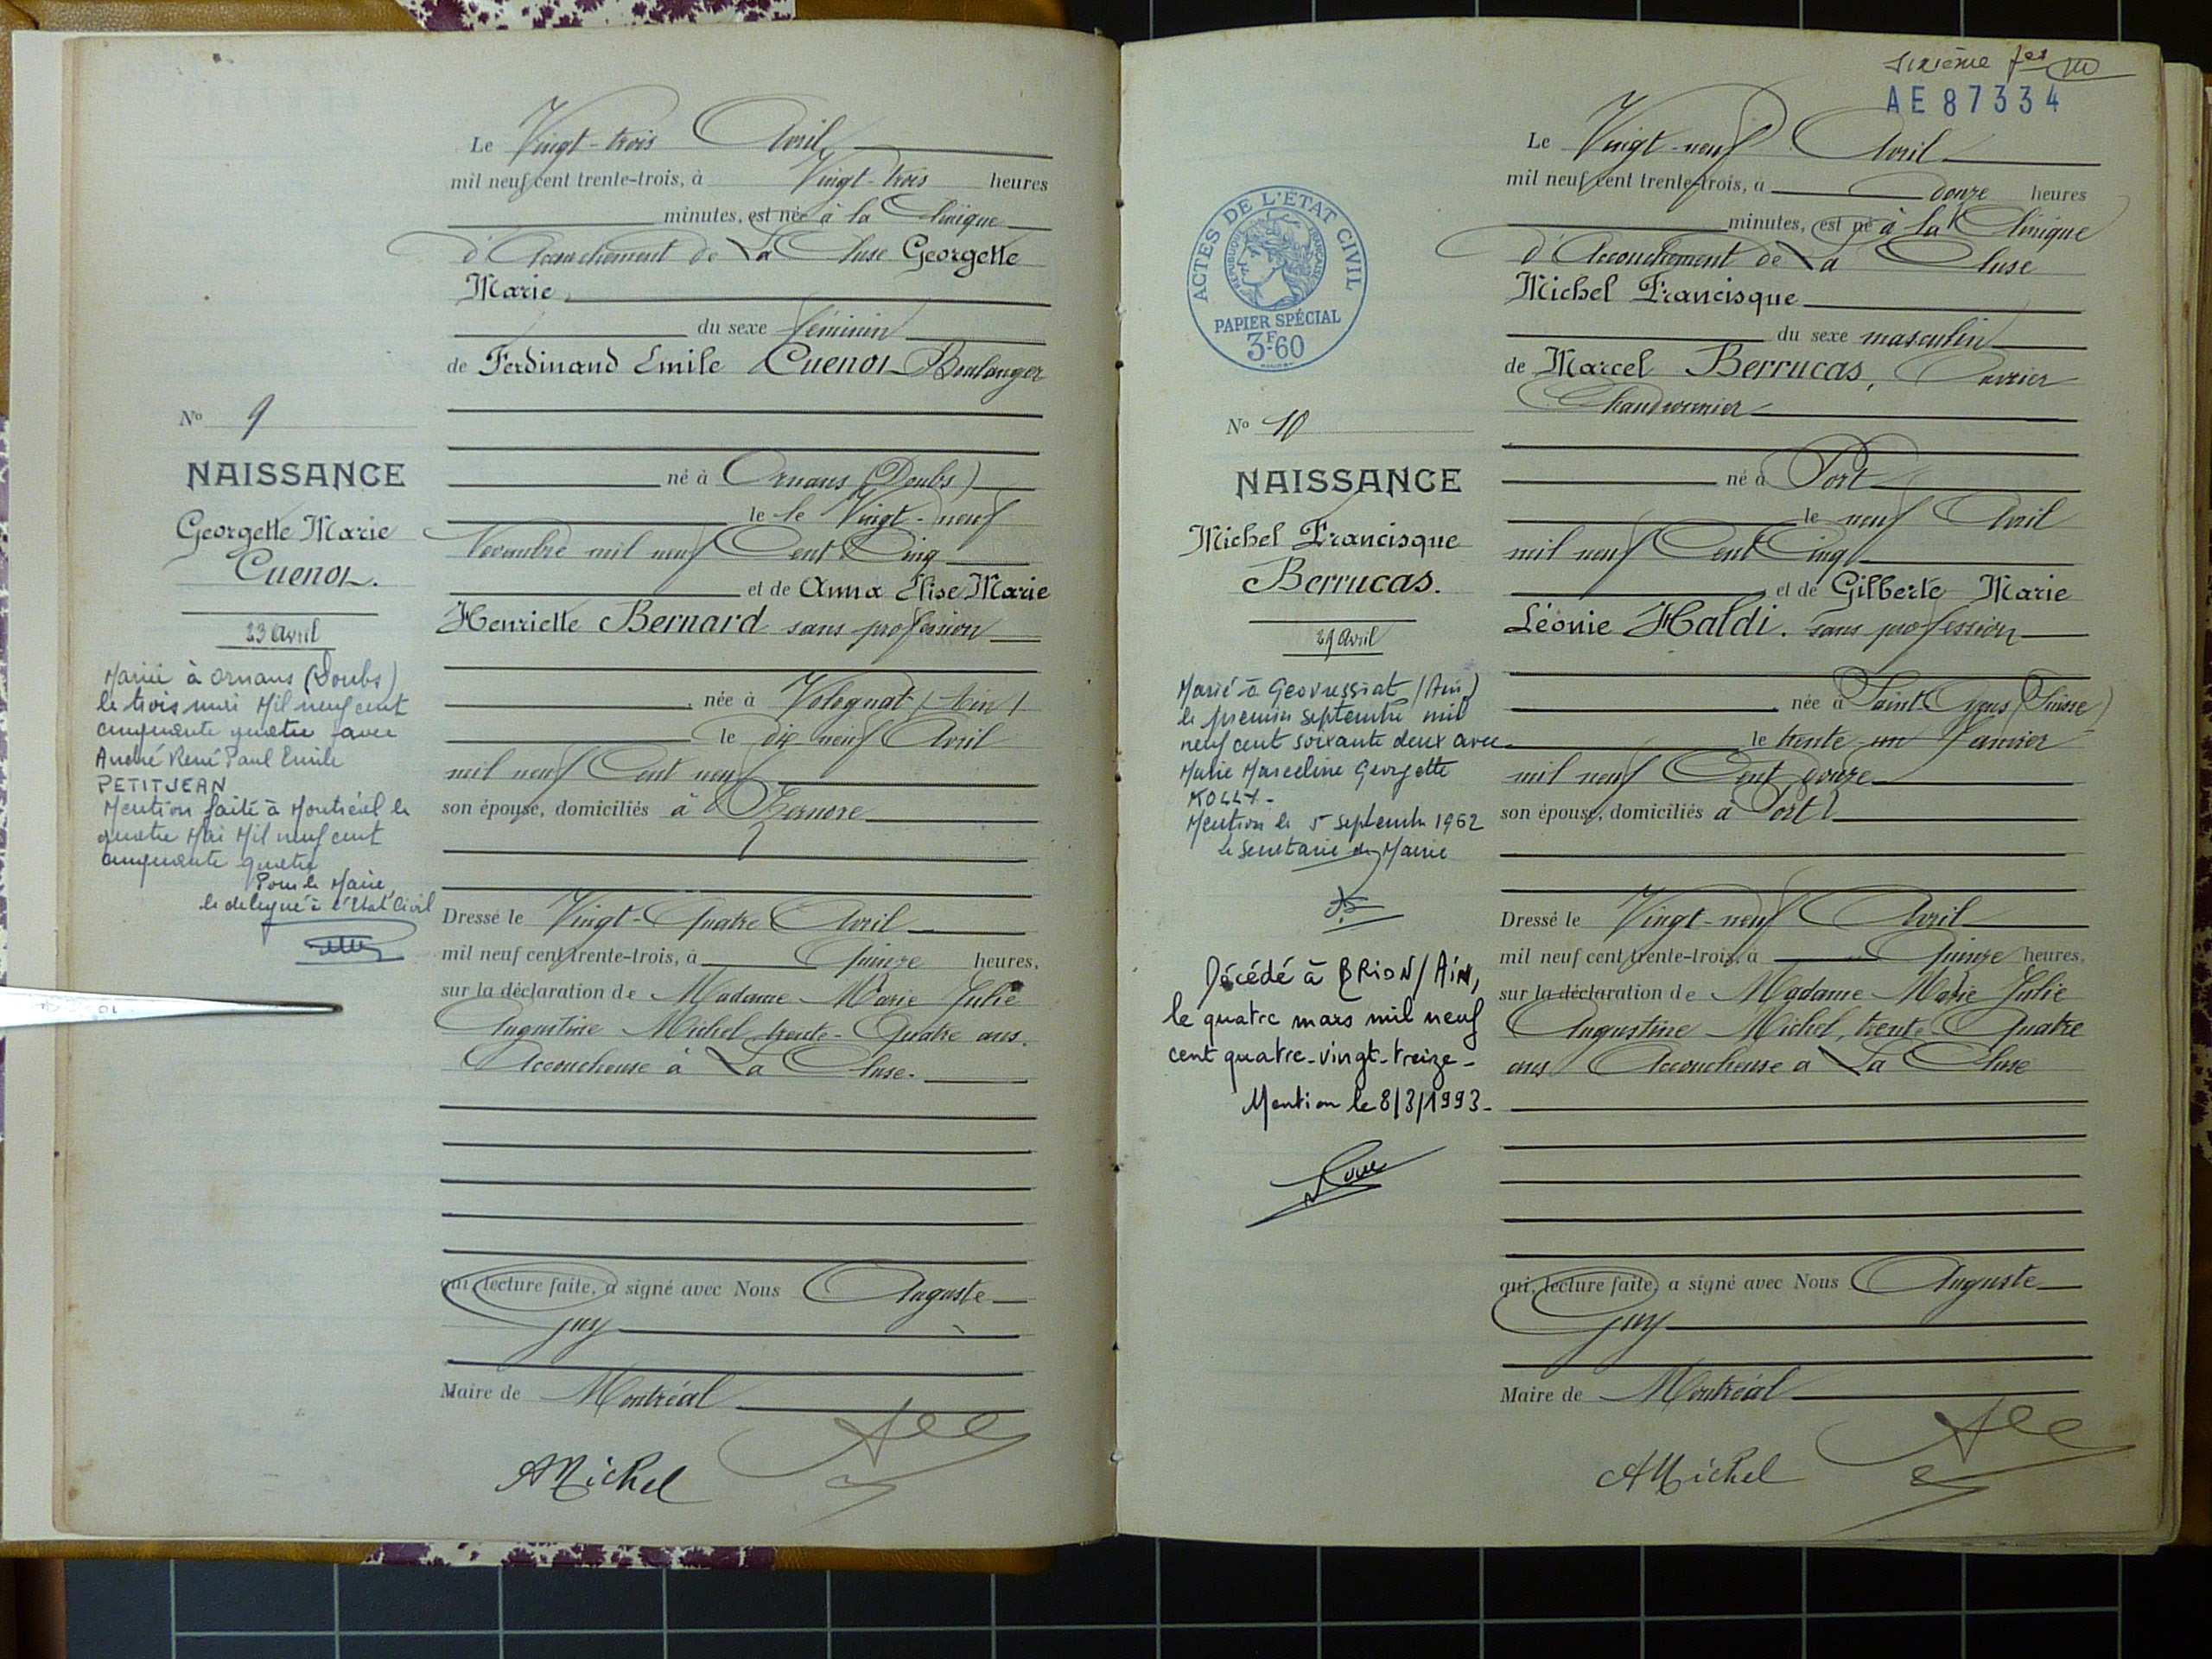 Le Vingt-trois Avril
mil neuf cent trente-trois, à Vingt-trois heures
minutes, est née à la Clinique
d'Accouchement de La Cluse Georgette
Marie
du sexe féminin
de Ferdinand Emile Cuenot Boulanger
né à Ornans (Doubs)
le le Vingt-neuf
Novembre mil neuf Cent Cinq
et de Anna Elise Marie
Henriette Bernard sans profession
née à Volognat (Ain)
le dix neuf Avril
mil neuf Cent neuf
son épouse, domiciliés à Izernore
Dressé le Vingt-Quatre Avril
mil neuf cent trente-trois, à Quinze heures,
sur la déclaration de Madame Marie Julie
Augustine Michel trente-Quatre ans.
Accoucheuse à La Cluse.
qui, lecture faite, a signé avec Nous Auguste
Guy
Maire de Montréal
AMichel
No 9
NAISSANCE
Georgette Marie
Cuenot.
23 avril
Mariée à Ornans (Doubs)
le trois mai Mil neuf cent
cinquante quatre avec
André René Paul Emile
PETITJEAN
Mention faite à Montréal le
quatre Mai Mil neuf cent
cinquante quatre
Pour le Maire,
le délégué à l'Etat Civil
Sixième
AE 87334
Le Vingt-neuf Avril
mil neuf cent trente-trois, à douze heures
minutes, est né à la Clinique
d'Accouchement de La Cluse
Michel Francisque
du sexe masculin
de Marcel Berrucas, Ouvrier
Chaudronnier
né à Port
le neuf Avril
mil neuf Cent Cinq
et de Gilberte Marie
Léonie Haldi. sans profession
née à Saint-Cyges (Suisse)
le trente-un Janvier
mil neuf Cent douze
son épouse, domiciliés à Port
Dressé le Vingt-neuf Avril
mil neuf cent trente-trois, à Quinze heures,
sur la déclaration de Madame Marie Julie
Augustine Michel, trente-Quatre
ans Accoucheuse à La Cluse
qui, lecture faite, a signé avec Nous Auguste
Guy
Maire de Montréal
AMichel
ACTES DE L'ÉTAT CIVIL
RÉPUBLIQUE FRANÇAISE
PAPIER SPÉCIAL
3F60
No 10
NAISSANCE
Michel Francisque
Berrucas.
29 Avril
Marié à Geovressiat (Ain)
le premier septembre mil
neuf cent soixante deux avec
Marie Marceline Georgette
KOLLY-
Mention le 5 septembre 1962
Le Secrétaire de Mairie
Décédé à BRION/AIN,
le quatre mars mil neuf
cent quatre-vingt-treize-
Mention le 8/3/1993-